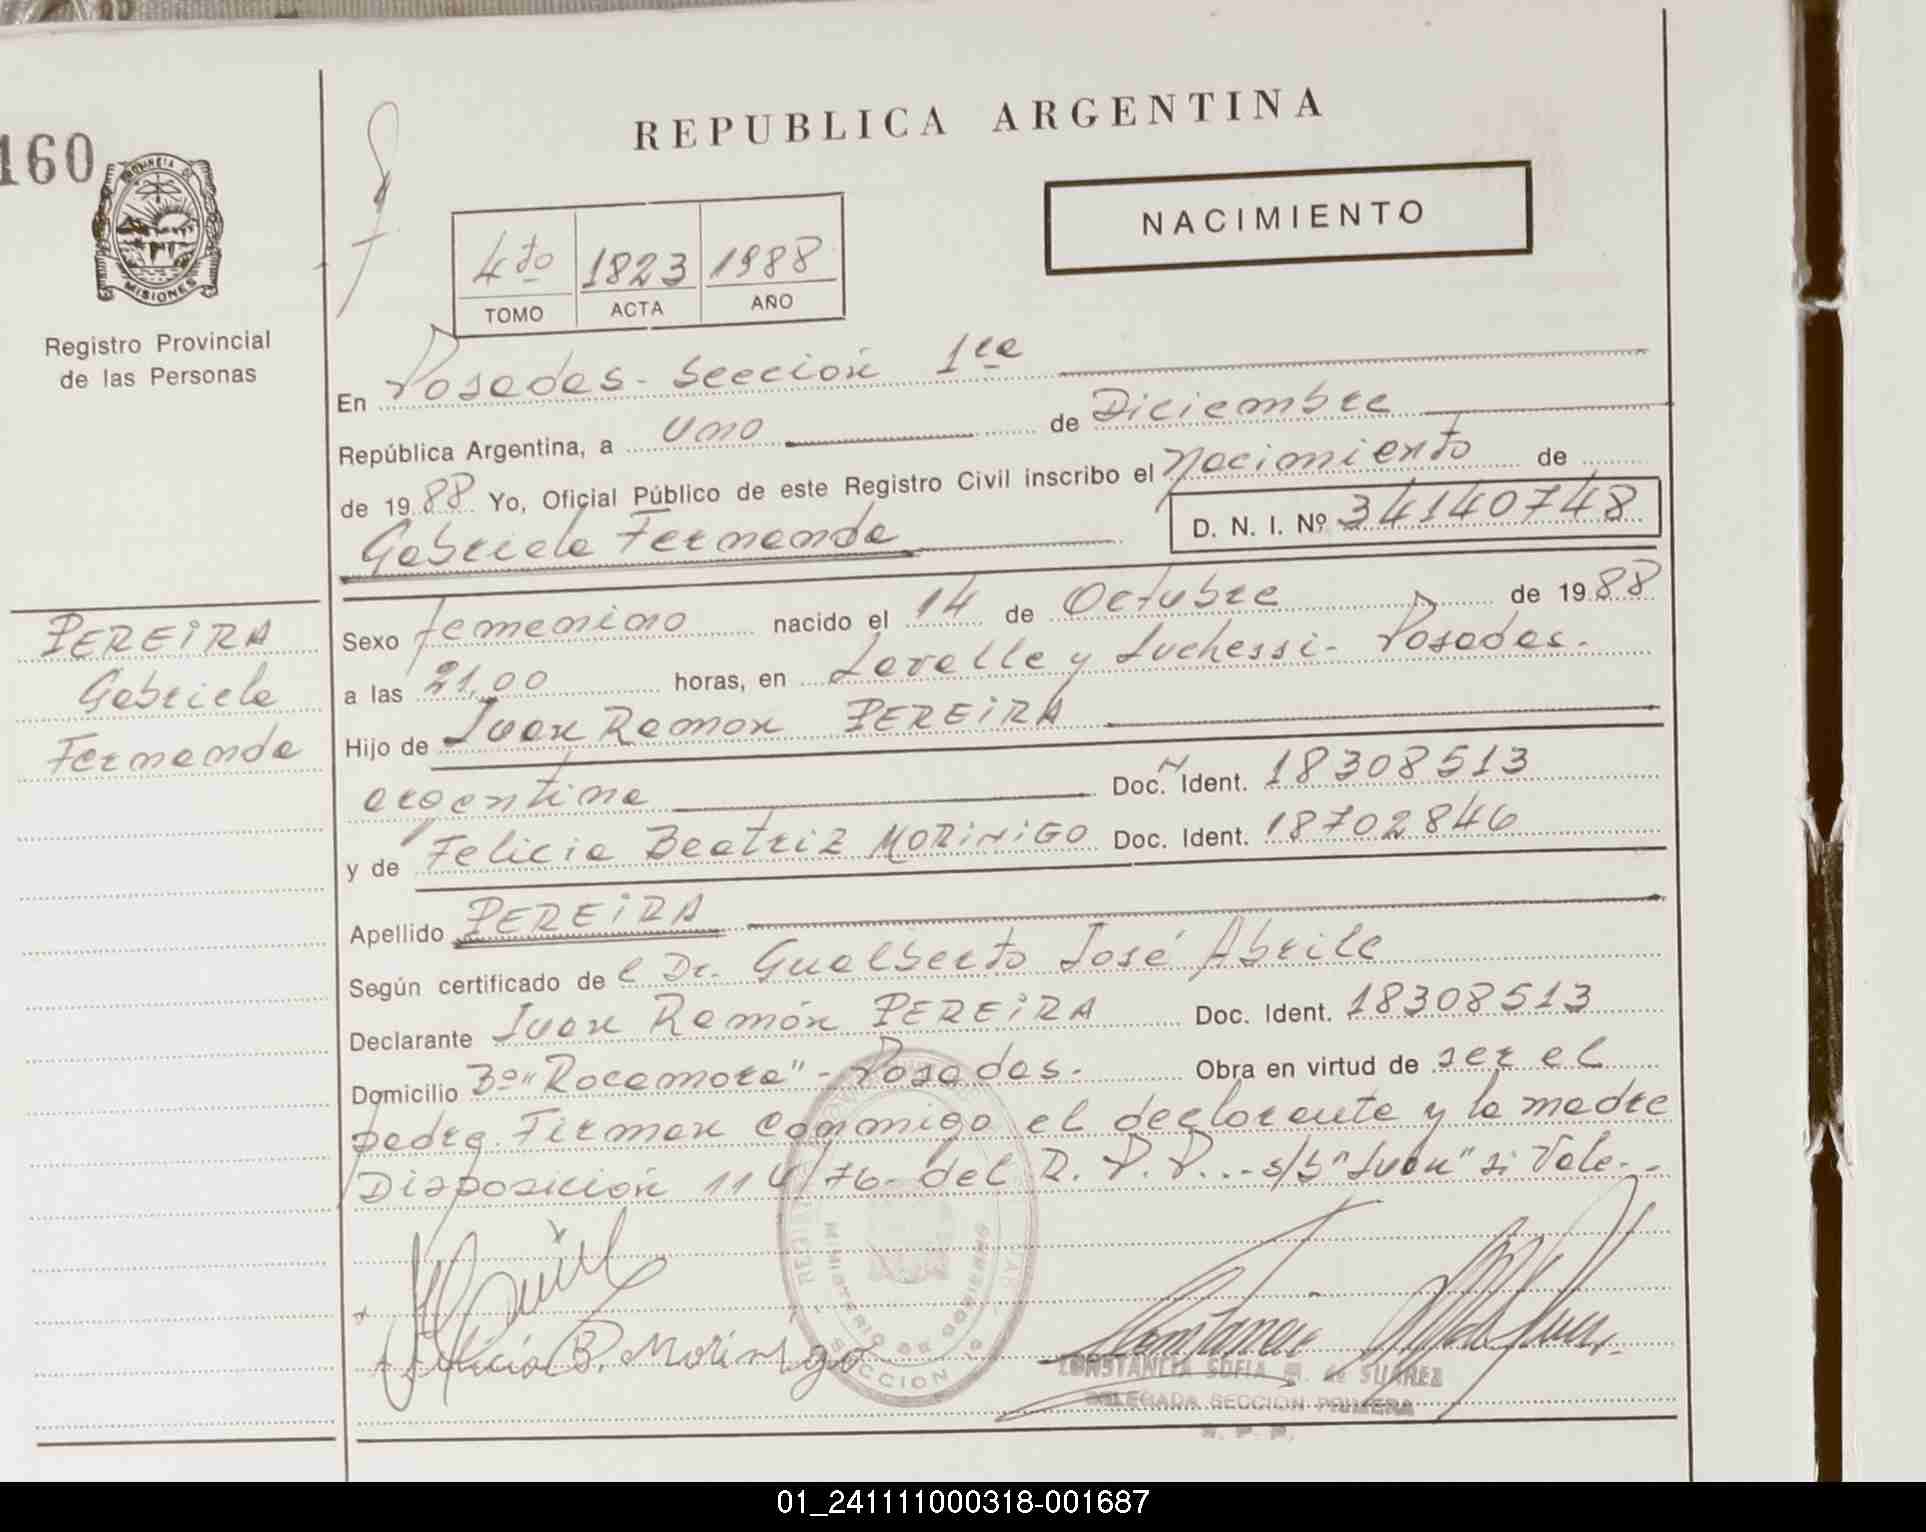 160
PROVINCIA DE
MISIONES
Registro Provincial
de las Personas
REPUBLICA ARGENTINA
NACIMIENTO
4to 1823 1988
TOMO ACTA AÑO
En Posadas - Sección 1ra
República Argentina, a Uno de Diciembre
de 1988 Yo, Oficial Público de este Registro Civil inscribo el Nacimiento de
Gabriela Fernanda D. N. I. Nº 34140748
Sexo femenino nacido el 14 de Octubre de 1988
a las 21,00 horas, en Lavalle y Luchessi - Posadas.
Hijo de Juan Ramon PEREiRA
argentina Doc. N Ident. 18308513
y de Felicia Beatriz MORiNiGO Doc. Ident. 18702846
Apellido PEREiRA
Según certificado de l Dr. Gualberto José Abrile
Declarante Juan Ramón PEREiRA Doc. Ident. 18308513
Domicilio Bº "Rocamora" - Posadas. Obra en virtud de ser el
padre. Firman conmigo el declarante y la madre
Disposición 114/76 - del R. P. P. - s/b "Juan" si Vale -
PEREiRA
Gabriela
Fernanda
Felicia B. Morinigo
MINISTERIO DE GOBIERNO
SECCION
CONSTANCIA SOFIA M. de SUAREZ
DELEGADA SECCION PRIMERA
R. P. P.
01_241111000318-001687